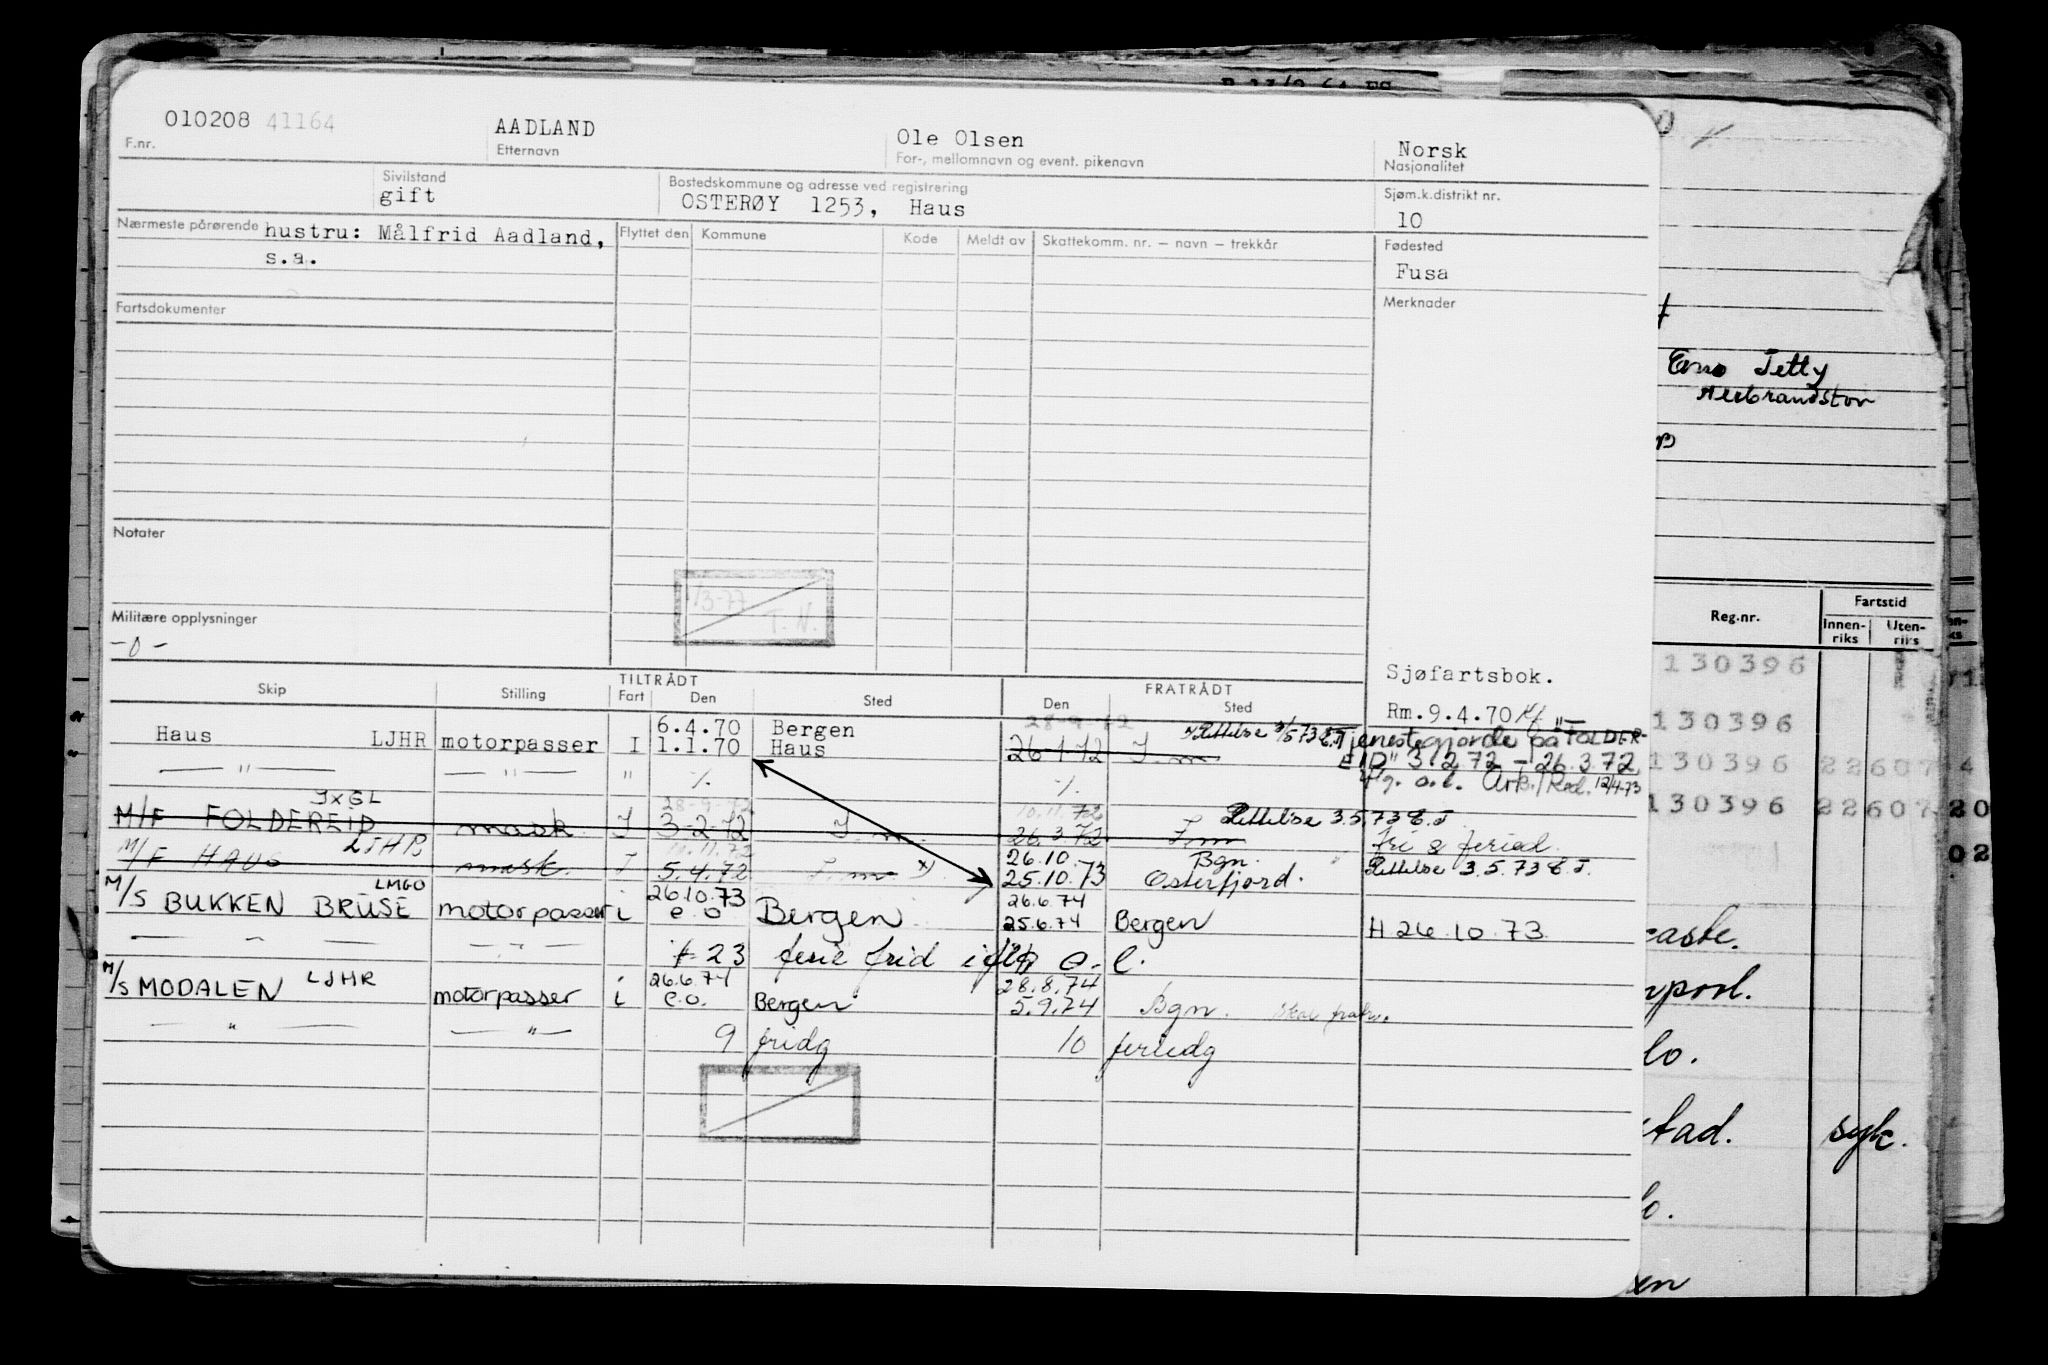 010208 41164 AADLAND Ole Olsen Norsk
F.nr. Etternavn For-, mellomnavn og event. pikenavn Nasjonalitet
Sivilstand Bostedskommune og adresse ved registrering Sjøm.k.distrikt nr.
gift OSTERØY 1253, Haus 10
Nærmeste pårørende hustru: Målfrid Aadland, Flyttet den Kommune Kode Meldt av Skattekomm. nr. – navn – trekkår Fødested
s.a. Fusa
Fartsdokumenter Merknader
Notater
T. N.
Militære opplysninger
-0-
Sjøfartsbok.
Skip Stilling TILTRÅDT FRATRÅDT
Fart Den Sted Den Sted
Rm.9.4.70
6.4.70 Bergen 28-9-72 Rettelse 3/5 73 E.J
Haus LJHR motorpasser I 1.1.70 Haus 26-1-72 Tjenestegjorde på "FOLDER-
— " — — " — " ٪ ٪ EID" 3.2.72 – 26.3.72
o.l. Ark./Red. 12/4-73
JXGL 28-9-72 10.11.72 Rettelse 3.5.73 E.J
M/F FOLDEREID mask I 3-2-72 26.3.72
LJHR 26.10. Bgn.
M/F HAUS mask. I 5.4.72 x) 25.10.73 Osterfjord. Rettelse 3.5.73 E.J.
LMGO 26.10.73 26.6.74
M/S BUKKEN BRUSE motorpasser i e.o Bergen 25.6.74 Bergen H 26.10.73
— " — — " — + 23 ferie frid
M/S MODALEN LJHR motorpasser i 26.6.74 28.8.74
e.o. Bergen 5.9.74 Bgn.
— " — — " — 9 fridg 10 feriedg
Tetty
Reg.nr. Fartstid
Innen-riks Uten-riks
130396
130396
130396 22607 4
130396 22607 20
02
syk.